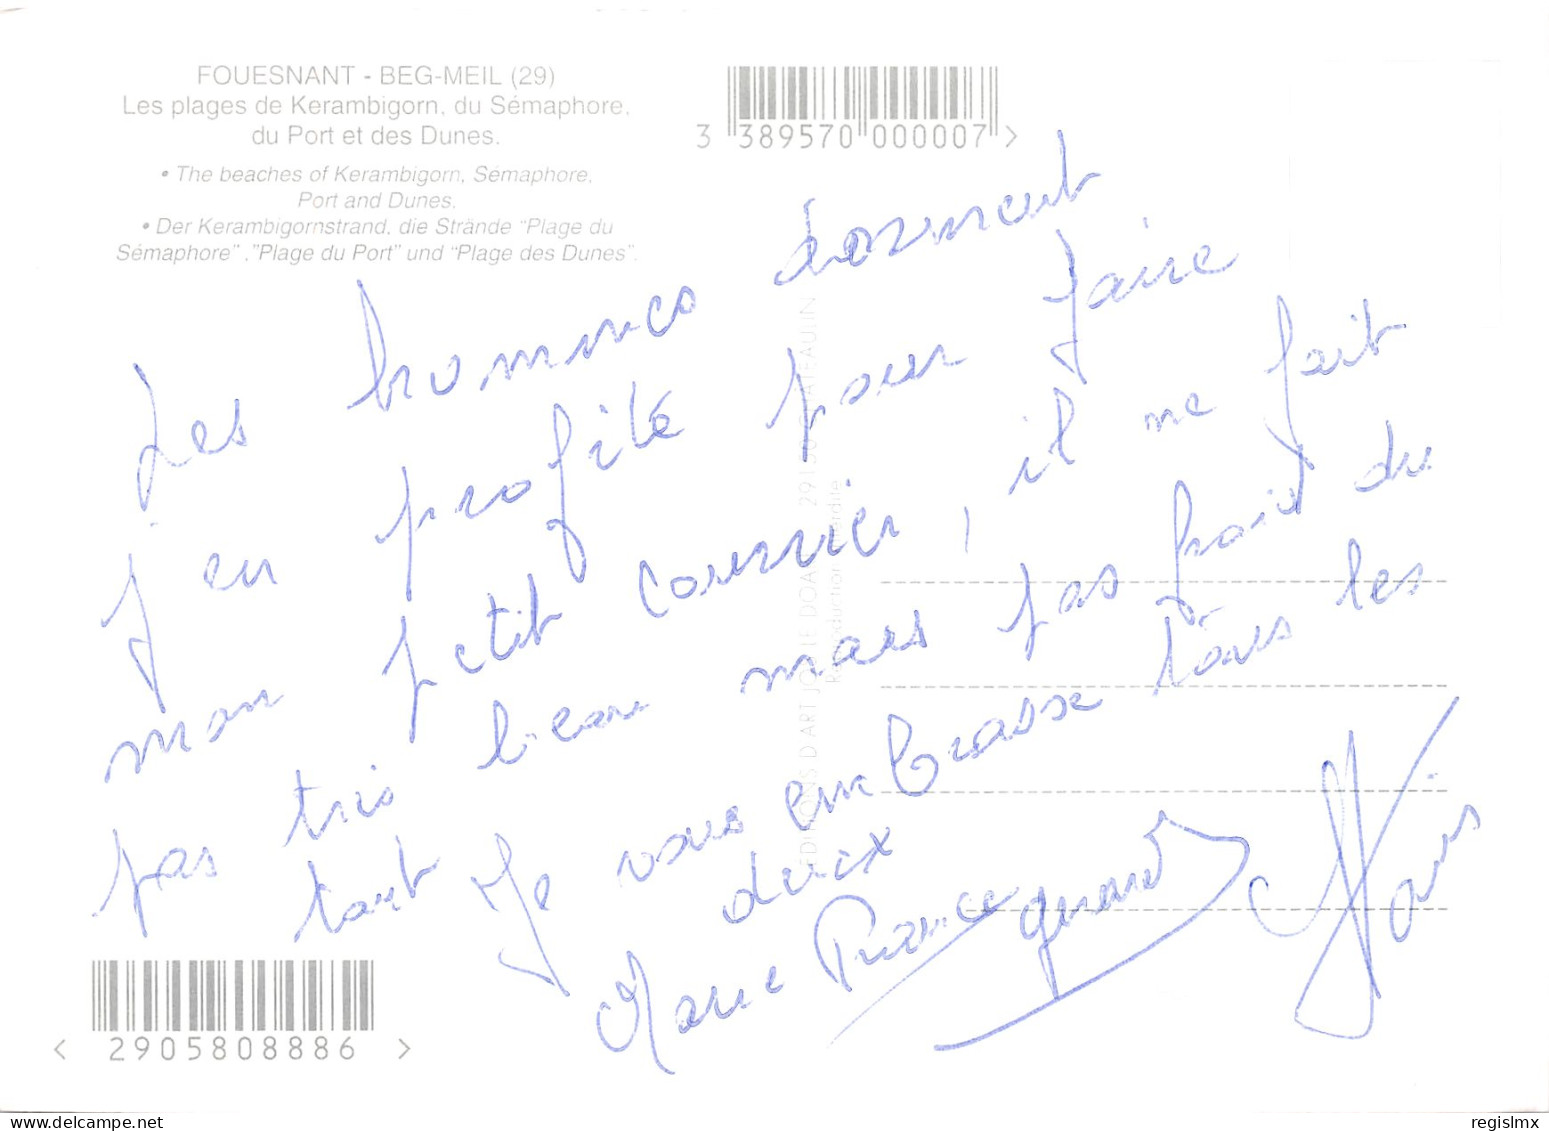 FOUESNANT - BEG-MEIL (29)
Les plages de Kerambigorn, du Sémaphore,
du Port et des Dunes.
• The beaches of Kerambigorn, Sémaphore,
Port and Dunes.
• Der Kerambigornstrand, die Strände "Plage du
Sémaphore" ,"Plage du Port" und "Plage des Dunes".
3 389570 000007 >
Les hommes dorment
j'en profite pour faire
mon petit courrier, il ne fait
pas très beau mais pas froid du
tout Je vous embrasse tous les
deux
Marie France
EDITIONS D'ART JOS LE DOARE 29150 CHATEAULIN
Reproduction interdite
< 2905808886 >
regislmx